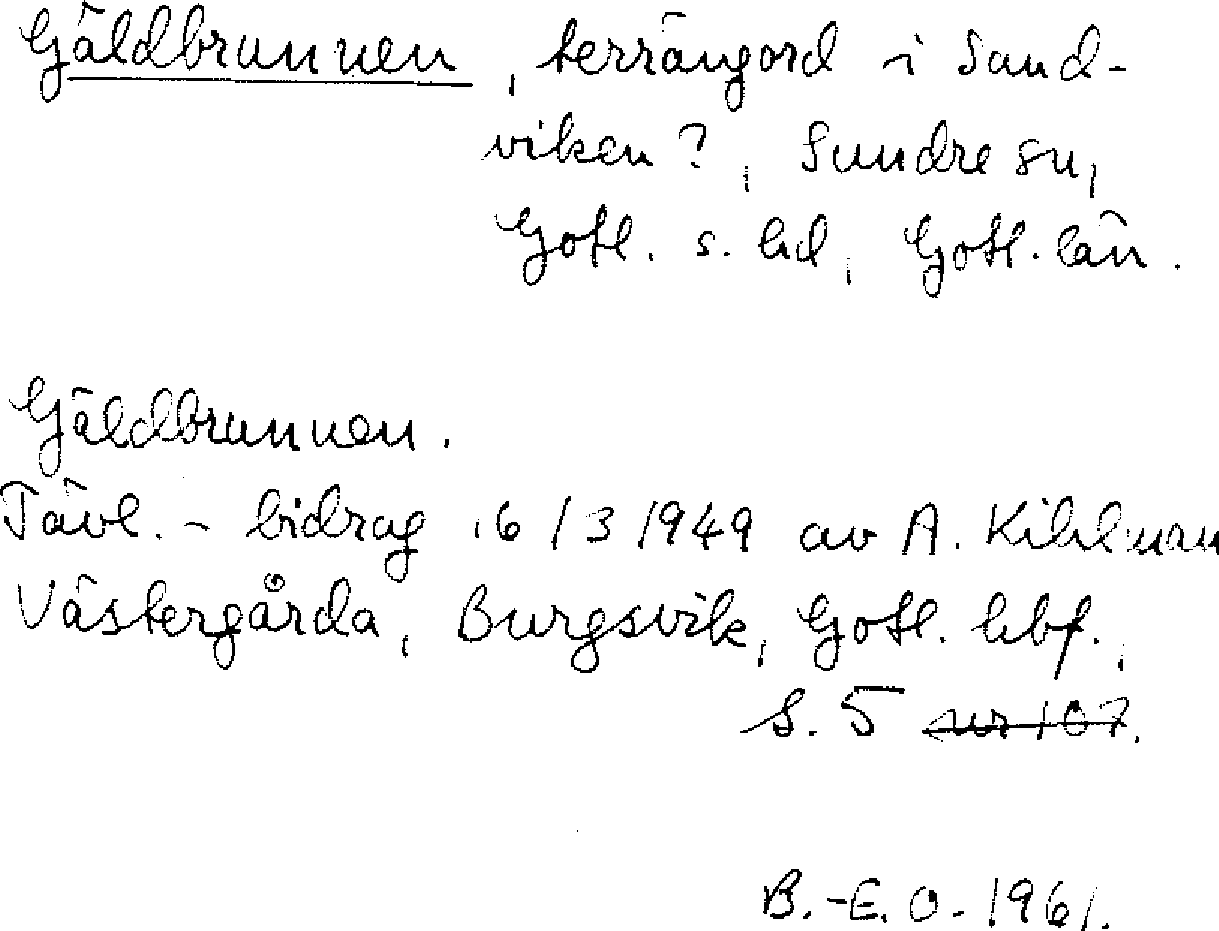 Gäldbrunnen, terrängord i Sand-
viken?, Sundre sn,
Gotl. s. hd, Gotl. län.
Gäldbrunnen.
Tävl. - bidrag 16/3 1949 av A. Kihlman
Västergårda, Burgsvik, Gotl. hbf.,
S. 5 nr 107.
B.-E. O. 1961.